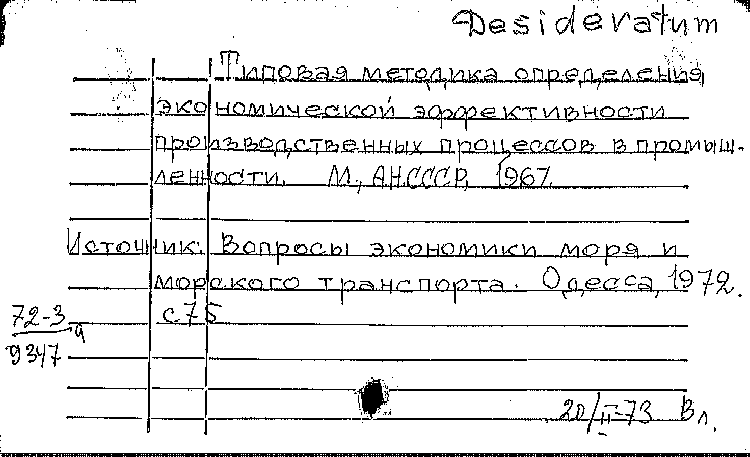 Desideratum
Типовая методика определения
экономической эффективности
производственных процессов в промыш-
ленности. М., АН.СССР, 1967.
Источник: Вопросы экономики моря и
морского транспорта. Одесса, 1972.
с 75
72-3
9347
20/II-73 Вл.